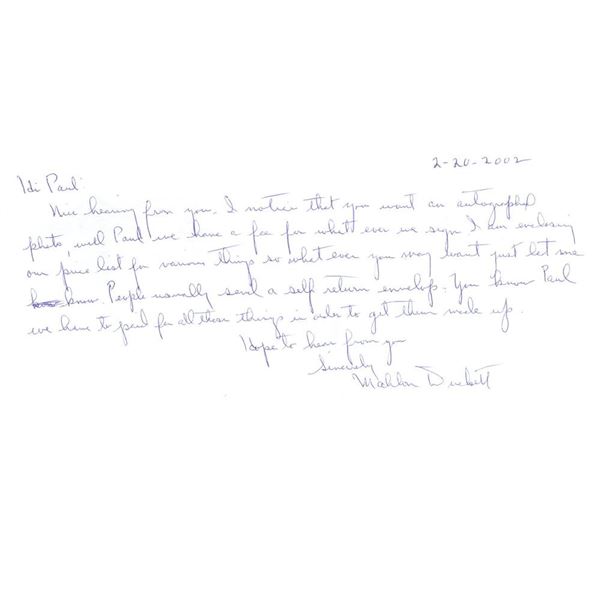 2-20-2002
Hi Paul:
Nice hearing from you. I notice that you want an autographed
photo, well Paul we have a fee for whatt ever we sign I am enclosing
our price list for various things so what ever you may want just let me
know. People usually send a self return envelop. You know Paul
we have to paid for all those things in order to get them made up.
Hope to hear from you
Sincerely
Mahlon Duckett